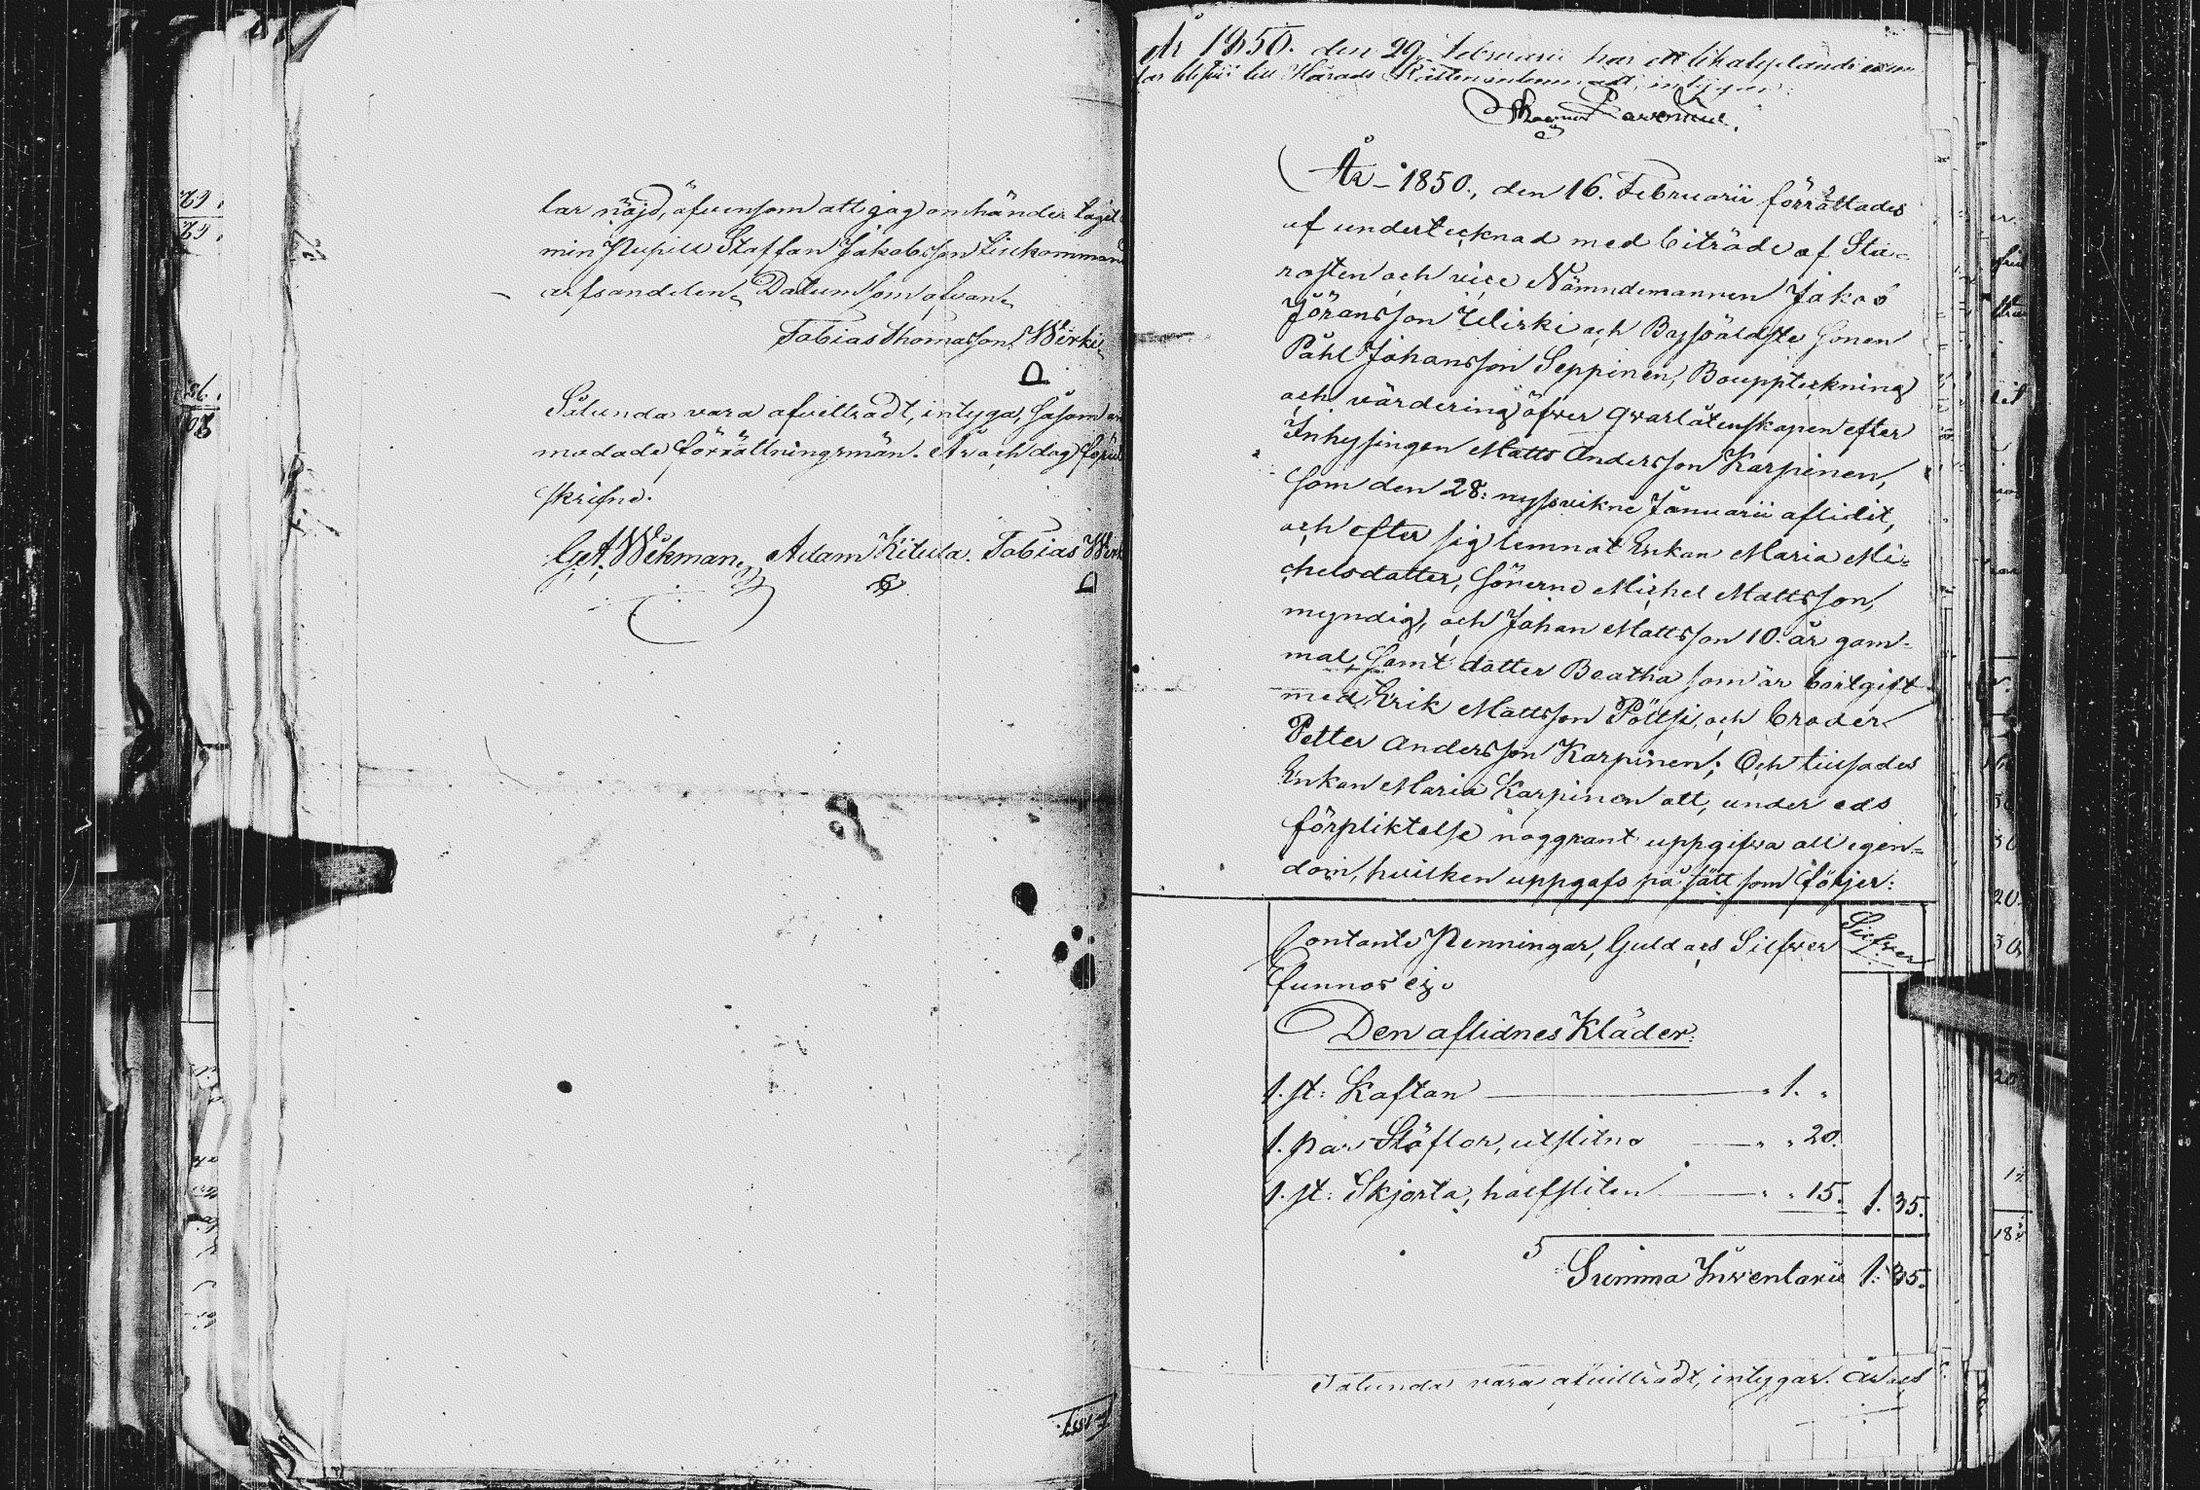 lar nöjd, äfvensom att jag omhänder tagit
min Pupill Staffan Jakobsson tillkommand
arfsandelen, Datum som ofvan.
Tobias Thomasson Wirki
Sålunda vara afvittradt, intyga, såsom an
modade förrättningsmän. År och dag förut
skrifne.
Wekman, Adam Kitula. Tobias Wirk
År 1850. den 29 Februarii har ett likalydande exem
lar blifvit till Härads Rätten inlemnadt, intygar:
År 1850., den 16. Februarii förrättades
af undertecknad med biträde af Sta-
rosten och vice Nämndemannen Jakob
Jöransson Wirki och Bysäldste sonen
Påhl Johansson Seppinen, Bouppteckning
och värdering öfver qvarlåtenskapen efter
Inhysingen Matts Andersson Karpinen,
som den 28: nyssvikne Januarii aflidit,
och efter sig lemnat Enkan Maria Mi-
chelsdatter, Sönerne Michel Mattsson,
myndig, och Johan Mattsson 10. år gam-
mal, samt dotter Beatha som är bortgift
med Erik Mattsson Pöllsi, och broder
Petter Andersson Karpinen; Och tillsades
Enkan Maria Karpinen att, under eds
förpliktelse noggrant uppgifva all egen-
dom, hvilken uppgafs på sätt som följer:
Silfver
Contante Penningar, Guld och Silfver
funnos ej.
Den aflidnes Kläder:
1. st: Kaftan 1. "
1. par Stöflor, utslitna " 20.
1. st: Skjorta, halfsliten " 15. 1. 35.
Summa Inventarii 1. 35.
Sålunda vara afvittradt, intygar. År och